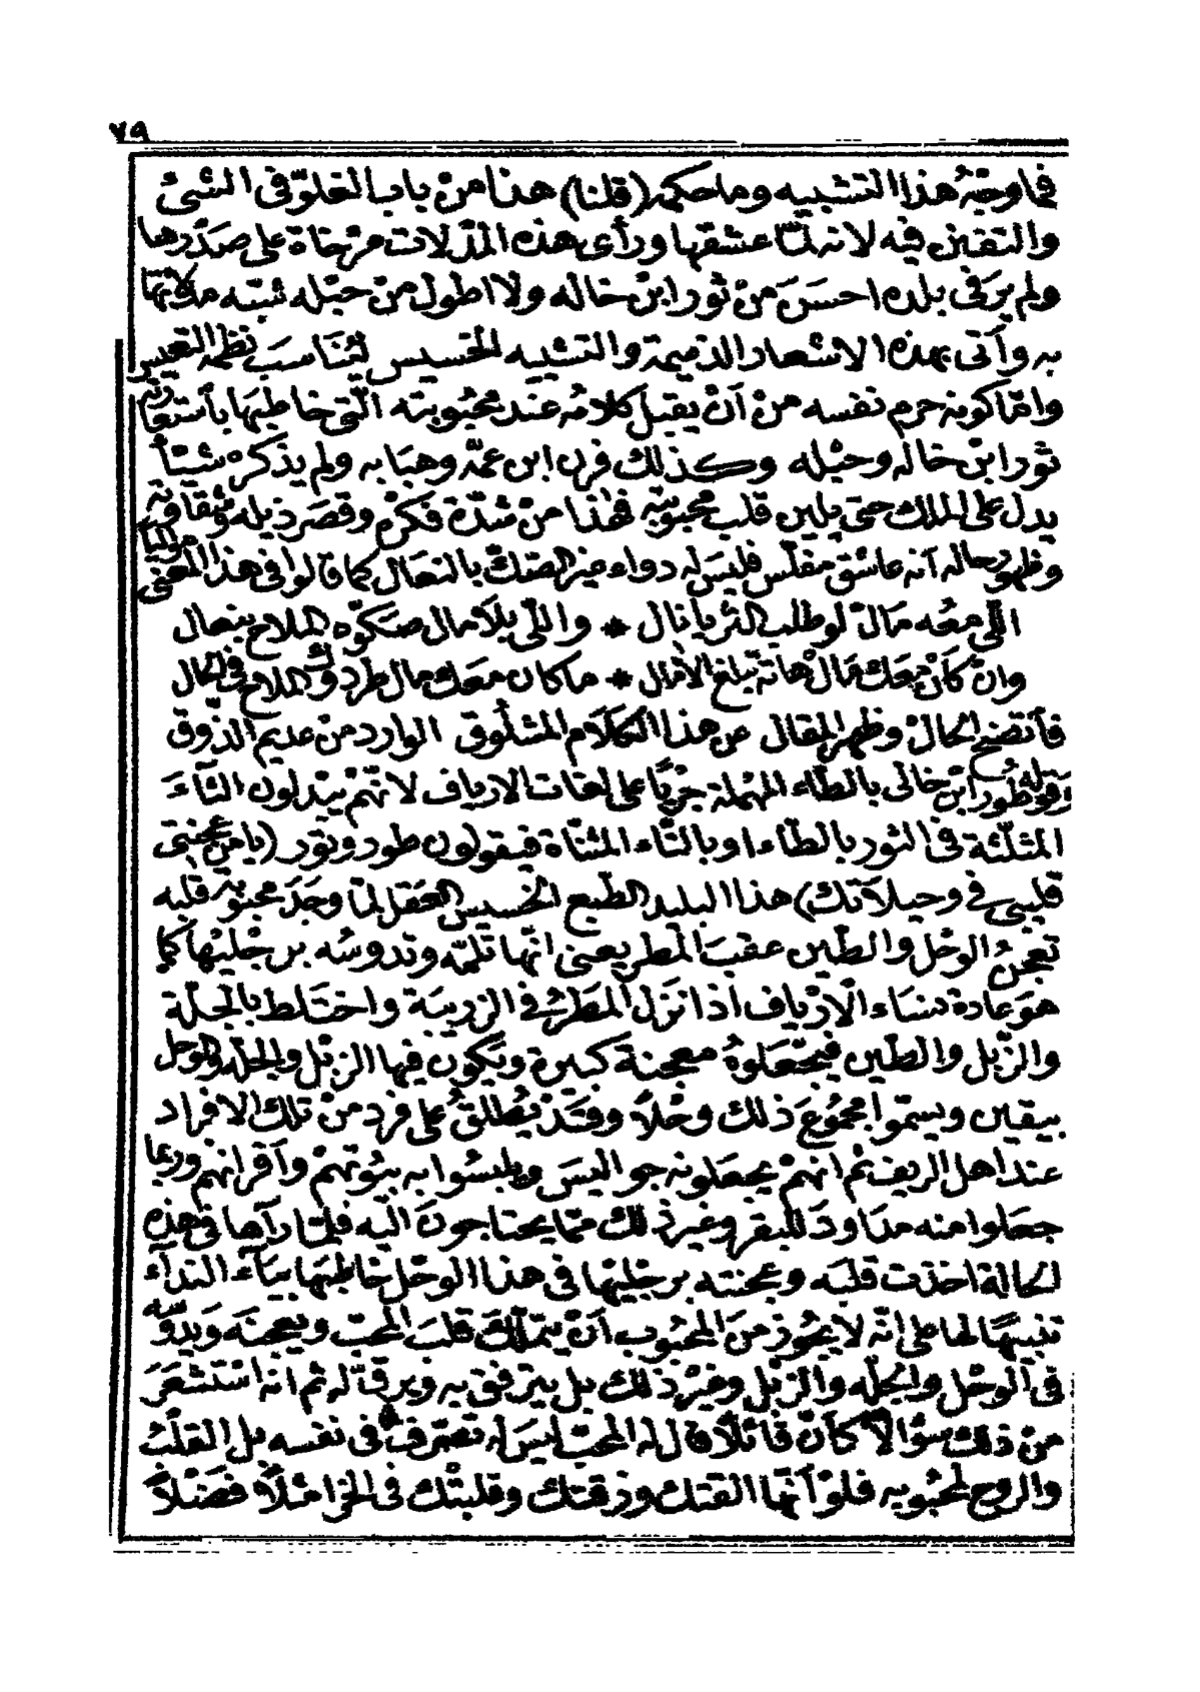 ٧٩
فما وجْهُ هذا التشبيه وما حكمه (قلنا) هذا من باب الغلوّ فى الشئ
والتفنن فيه لانه لمّا عشقها ورأى هذه المدّلات مرخاة على صدْرها
ولم ير فى بلده احسَنَ منْ ثور ابن خاله ولا اطول منْ حبْله شبّه
به وأتى بهذه الاشعار الذميمة والتشبيه الخسيس لتنَاسبَ نظمه التعيس
وامّا كونه حرم نفسه منْ أنْ يقبل كلامُه عند محْبوبته الّتى خاطبها بأستعارة
ثور ابنْ خاله وحبْله وكذلك قرن ابن عمّه وهبَا به ولم يذكرْ شيئاً
يدل على الملك حتى يلين قلب محْبوبته فهٰذا منْ شدّة فكرْه وقصَر ذيله
وظهو حاله أنه عاشق مفلّس فليسَ له دواء غير الصّك بالنعَال كما قالوا فى هذا المعنى
اللّى معُه مَالْ لو طلب الثريا نالْ * واللّى بلاَ مال صَكّوه الملاح بنعال
وانْ كَانْ معَك مَالْ هاته تبلغ الأمال * ما كان معَك مال طردوك الملاح فى الحال
فأتضح الحالْ وظهر المقال عن هذا الكلام المشلُوق الوارد منْ عديم الذّوق
وقوله طور ابنْ خالى بالطّاء المهْملة جرْيًا على لغات الارياف لانهّم يبْدلون الثّآءَ
المثلّثة فى الثور بالطّاء او بالتّاء المثنّاة فيقولون طور وتور (يا من عجنتى
قليبى فى وحيلاَتك) هذا البليد الطبع الخسيس العقل لمّا وجَدَ محبوبته قلبه
تعجنُ الوحْل والطّين عقبَ المطر يعنى انّها تلمّه وتدوسُه برجْليْها كما
هوَ عادة نسَاء الاَرْياف اذا نزَل المطَرُ فى الزريبَة واختَلط بالجلّة
والزّبل والطين فيجْعَلوهُ معجنة كبيرة ويَكون فيها الزبْل والجلّه والوحل
بيقين ويسمّوا مجْمُوعَ ذلك وحْلاً وقَدْ يُطلَقُ على فرد منْ تلك الافراد
عند اهل الريف ثم انهمْ يجعَلونه جواليسَ ويلبسُوا به بيُوتهمْ وأفرانهم وربما
جعلوا منه مداودَ للبقر وغير ذلك ممّا يحتاجونَ اليْه فلمّا رآها فى هذه
الحالة اخذت قلبَه وعجنته برجْليْها فى هذا الوحْل خاطبَها بيَآء الندآء
تنبيهًا لها على انّه لا يجُوز منَ المحْبوب أنْ يتملّك قلبَ المحبّ ويعجنَه ويَدوسَه
فى الوحْل والجلّه والزبْل وغيْر ذلك بل يترفق به ويرقّ له ثم انه اسْتشعَرَ
منْ ذلك سؤالاً كأنّ قائلاً قال له المحبّ ليسَ له تصَرف فى نفسه بل القلْبُ
والروح لمحْبوبه فلوْ أنّها القتك وزعقتك وقلبتْك فى الخرا مثلاً فضْلاً